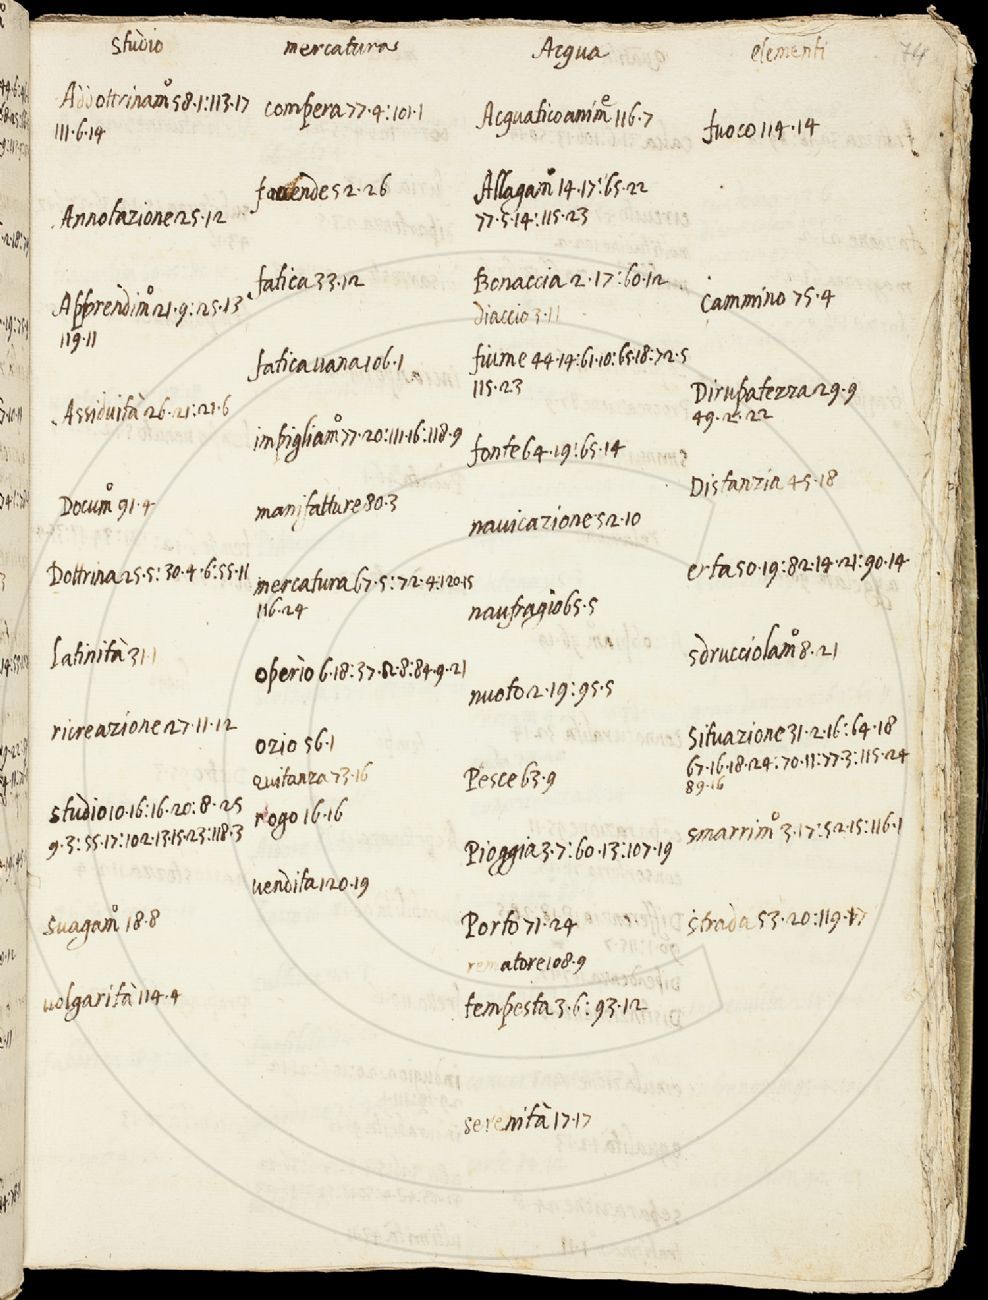 studio
Addottrinam.o 58·1:113·17
111·6·14
Annotazione 25·12
Apprendim.o 21·9:25·13
119·11
Assiduità 26·21:21·6
Docum.o 91·4
Dottrina 25·5:30·4·6:55·11
latinità 31·1
ricreazione 27·11·12
studio 10·16:16·20:8·25
9·3:55·17:102·13·15·23:118·3
suagam.o 18·8
uolgarità 114·4
mercatura
compera 77·4:101·1
facende 52·26
fatica 33·12
fatica uana 106·1
impigliam.o 77·20:111·16:118·9
manifatture 80·3
mercatura 67·5:72·4:120·15
116·24
operio 6·18:37·12·8:84·9·21
ozio 56·1
quitanza 73·16
rogo 16·16
uendita 120·19
Acqua
Acquatico anim.e 116·7
Allagam.o 14·17:65·22
77·5·14:115·23
Bonaccia 2·17:60·12
diaccio 3·11
fiume 44·14:61·10:65·18:72·5
115·23
fonte 64·19:65·14
nauicazione 52·10
naufragio 65·5
nuoto 2·19:95·5
Pesce 63·9
Pioggia 3·7:60·13:107·19
Porto 71·24
rematore 108·9
tempesta 3·6:93·12
serenità 17·17
elementi
74
fuoco 114·14
cammino 75·4
Dirupatezza 29·9
49·2·22
Distanzia 45·18
erta 50·19:82·14·21:90·14
sdrucciolam.o 8·21
situazione 31·2·16:64·18
67·16·18·24:70·11:77·3:115·24
89·16
smarrim.o 3·17:52·15:116·1
strada 53·20:119·17